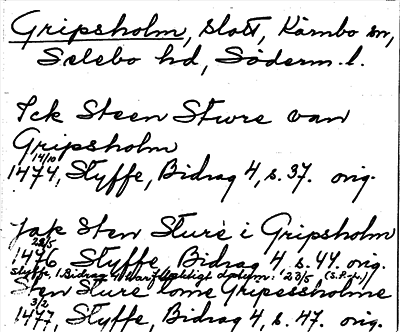 Gripsholm, slott, Kärnbo sn,
Selebo hd, Söderm. l.
Ick Steen Sture van
Gripsholm
14/10
1474, Styffe, Bidrag 4, s. 37. orig.
jak Sten Sture i Gripsholm
23/5
1476 Styffe, Bidrag 4 s. 44. orig.
Styffe, i Bidrag 4, har felaktigt 23/5
Sten Sture tome Gripessholme
3/2
1477, Styffe, Bidrag 4, s. 47. orig.